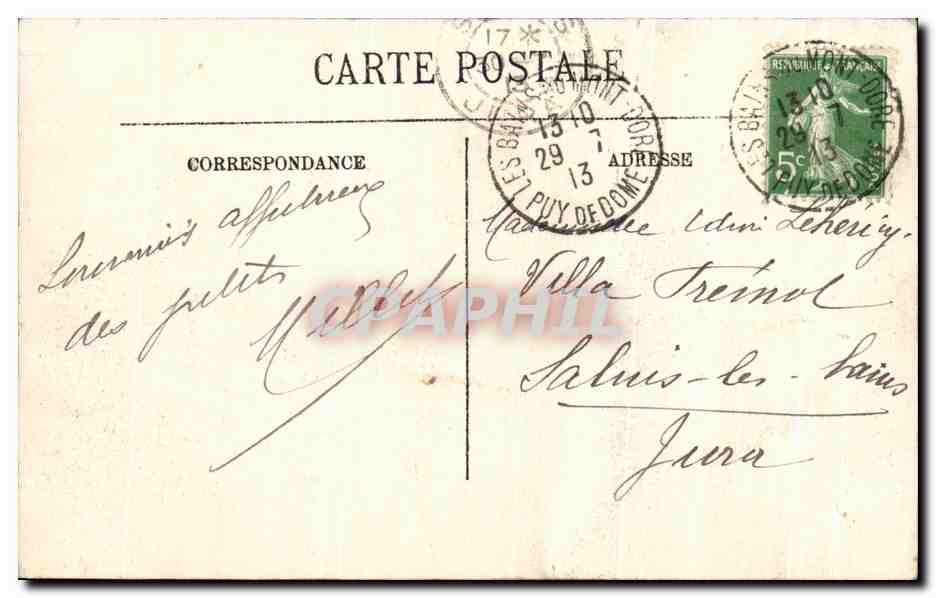 CARTE POSTALE
CORRESPONDANCE
ADRESSE
Souvenirs affectueux
des petits
Millet
Mademoiselle Lehéricy.
Villa Trémol
Salins-les-bains
Jura
LES BAINS DU MONT-DORE
13 10
29 7
13
PUY DE DOME
REPUBLIQUE FRANÇAISE
5c
LES BAINS DU MONT-DORE
13 10
29 7
13
PUY DE DOME
17 *
CPAPHIL